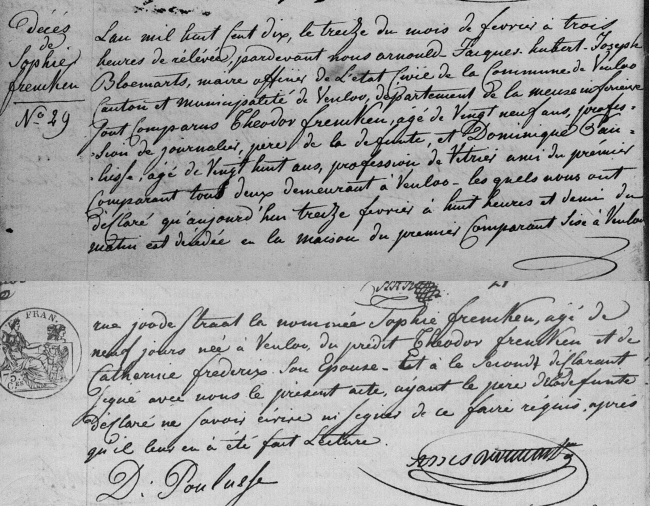 Décés
de
Sophie
frencken
No. 29
L'an mil huit cent dix, le treize du mois de fevrier à trois
heures de rélévée, pardevant nous arnould Jacques hubert Joseph
Bloemarts, maire officier de L'etat Civil de la Commune de Venloo
Canton et municipalité de Venloo, département de la meuse inferieure
sont Comparus Théodor frencken, agé de Vingt neuf ans, profes-
-sion de journalier, pére de la defunte, et Dominique Pau-
-lisse agé de Vingt huit ans, profession de Vitrier ami du premier
Comparant tous deux demeurant à Venloo - les quels nous ont
déclaré qu'aujourd'hui treize fevrier à huit heures et demi du
matin est décédée en la maison du premier Comparant Sise à Venloo
rue joode straat la nommée Sophie frencken, agé de
neuf jours née à Venloo, du prédit Théodor frencken et de
Catherine frederix Son Epouse - Et à le Second déclarant
Signé avec nous le present acte, ayant le pere de la defunte
déclaré ne Savoir écrire ni signer de ce faire requis, après
qu'il leur en à été fait Lecture.
D. Poulusse
FRAN.